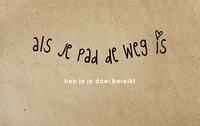 als je pad de weg is
heb je je doel bereikt